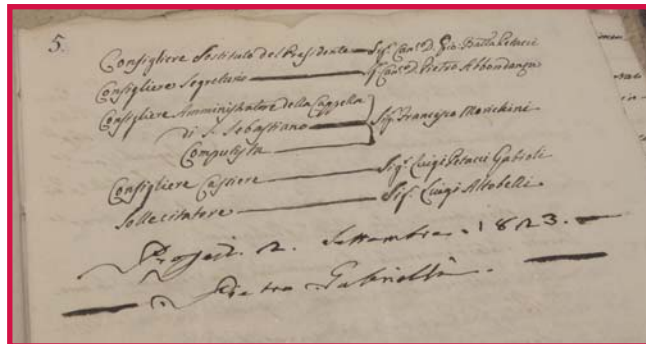 5.
Consigliere Sostituto del Presidente — Sig. Can.º D. Gio: Batta Petacci
Consigliere Segretario — Sig. Can.º D. Pietro Abbondanza
Consigliere Amministratore della Cappella
di S. Sebastiano — Sig. Francesco Morichini
Computista
Consigliere Cassiere — Sig. Luigi Petacci Gabrieli
Sollecitatore — Sig. Luigi Altobelli
2. Settembre. 1823.
Pietro Gabrielli.